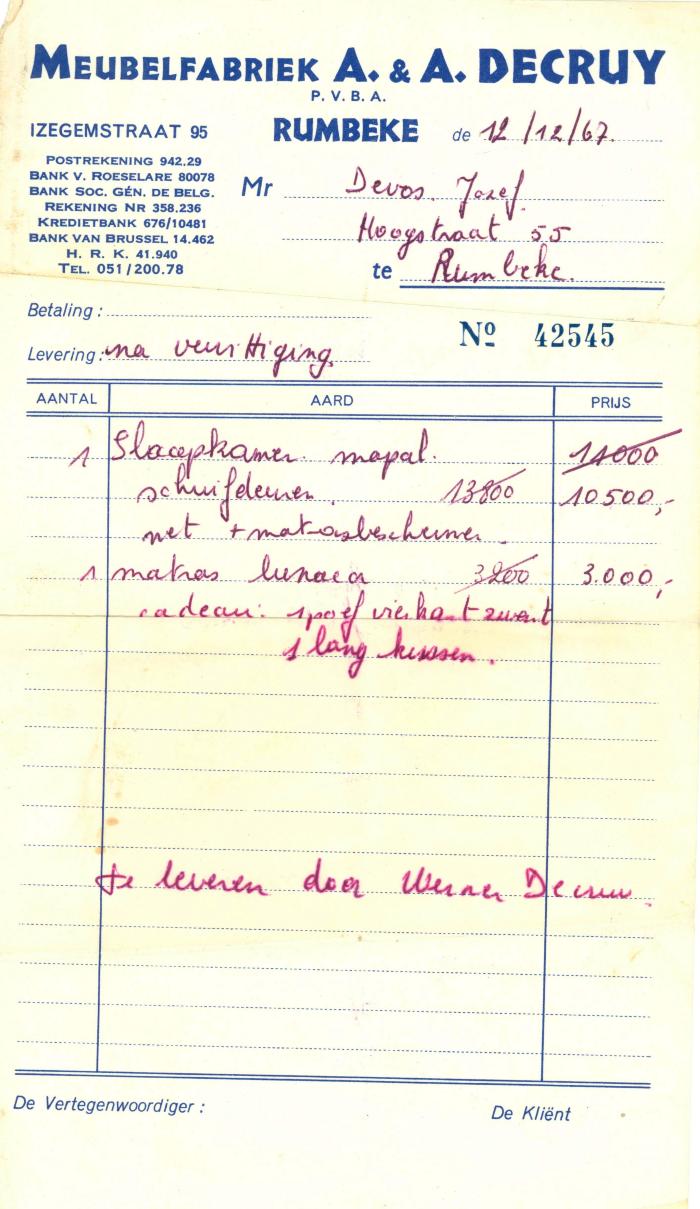 MEUBELFABRIEK A. & A. DECRUY
P. V. B. A.
IZEGEMSTRAAT 95 RUMBEKE de 12/12/67.
POSTREKENING 942.29
BANK V. ROESELARE 80078
BANK SOC. GÉN. DE BELG.
REKENING NR 358.236
KREDIETBANK 676/10481
BANK VAN BRUSSEL 14.462
H. R. K. 41.940
TEL. 051/200.78
Mr Devos Jozef
Hoogstraat 55
te Rumbeke.
Betaling :
Nº 42545
Levering : na verwittiging.
AANTAL AARD PRIJS
1 Slaapkamer mapal. 14000
schuifdeuren. 13800 10500,-
net + matrasbeschermer.
1 matras lunaca 3200 3.000,-
cadeau: 1 poef vierkant zwart
1 lang kussen.
te leveren door Werner Decruy.
De Vertegenwoordiger :
De Kliënt